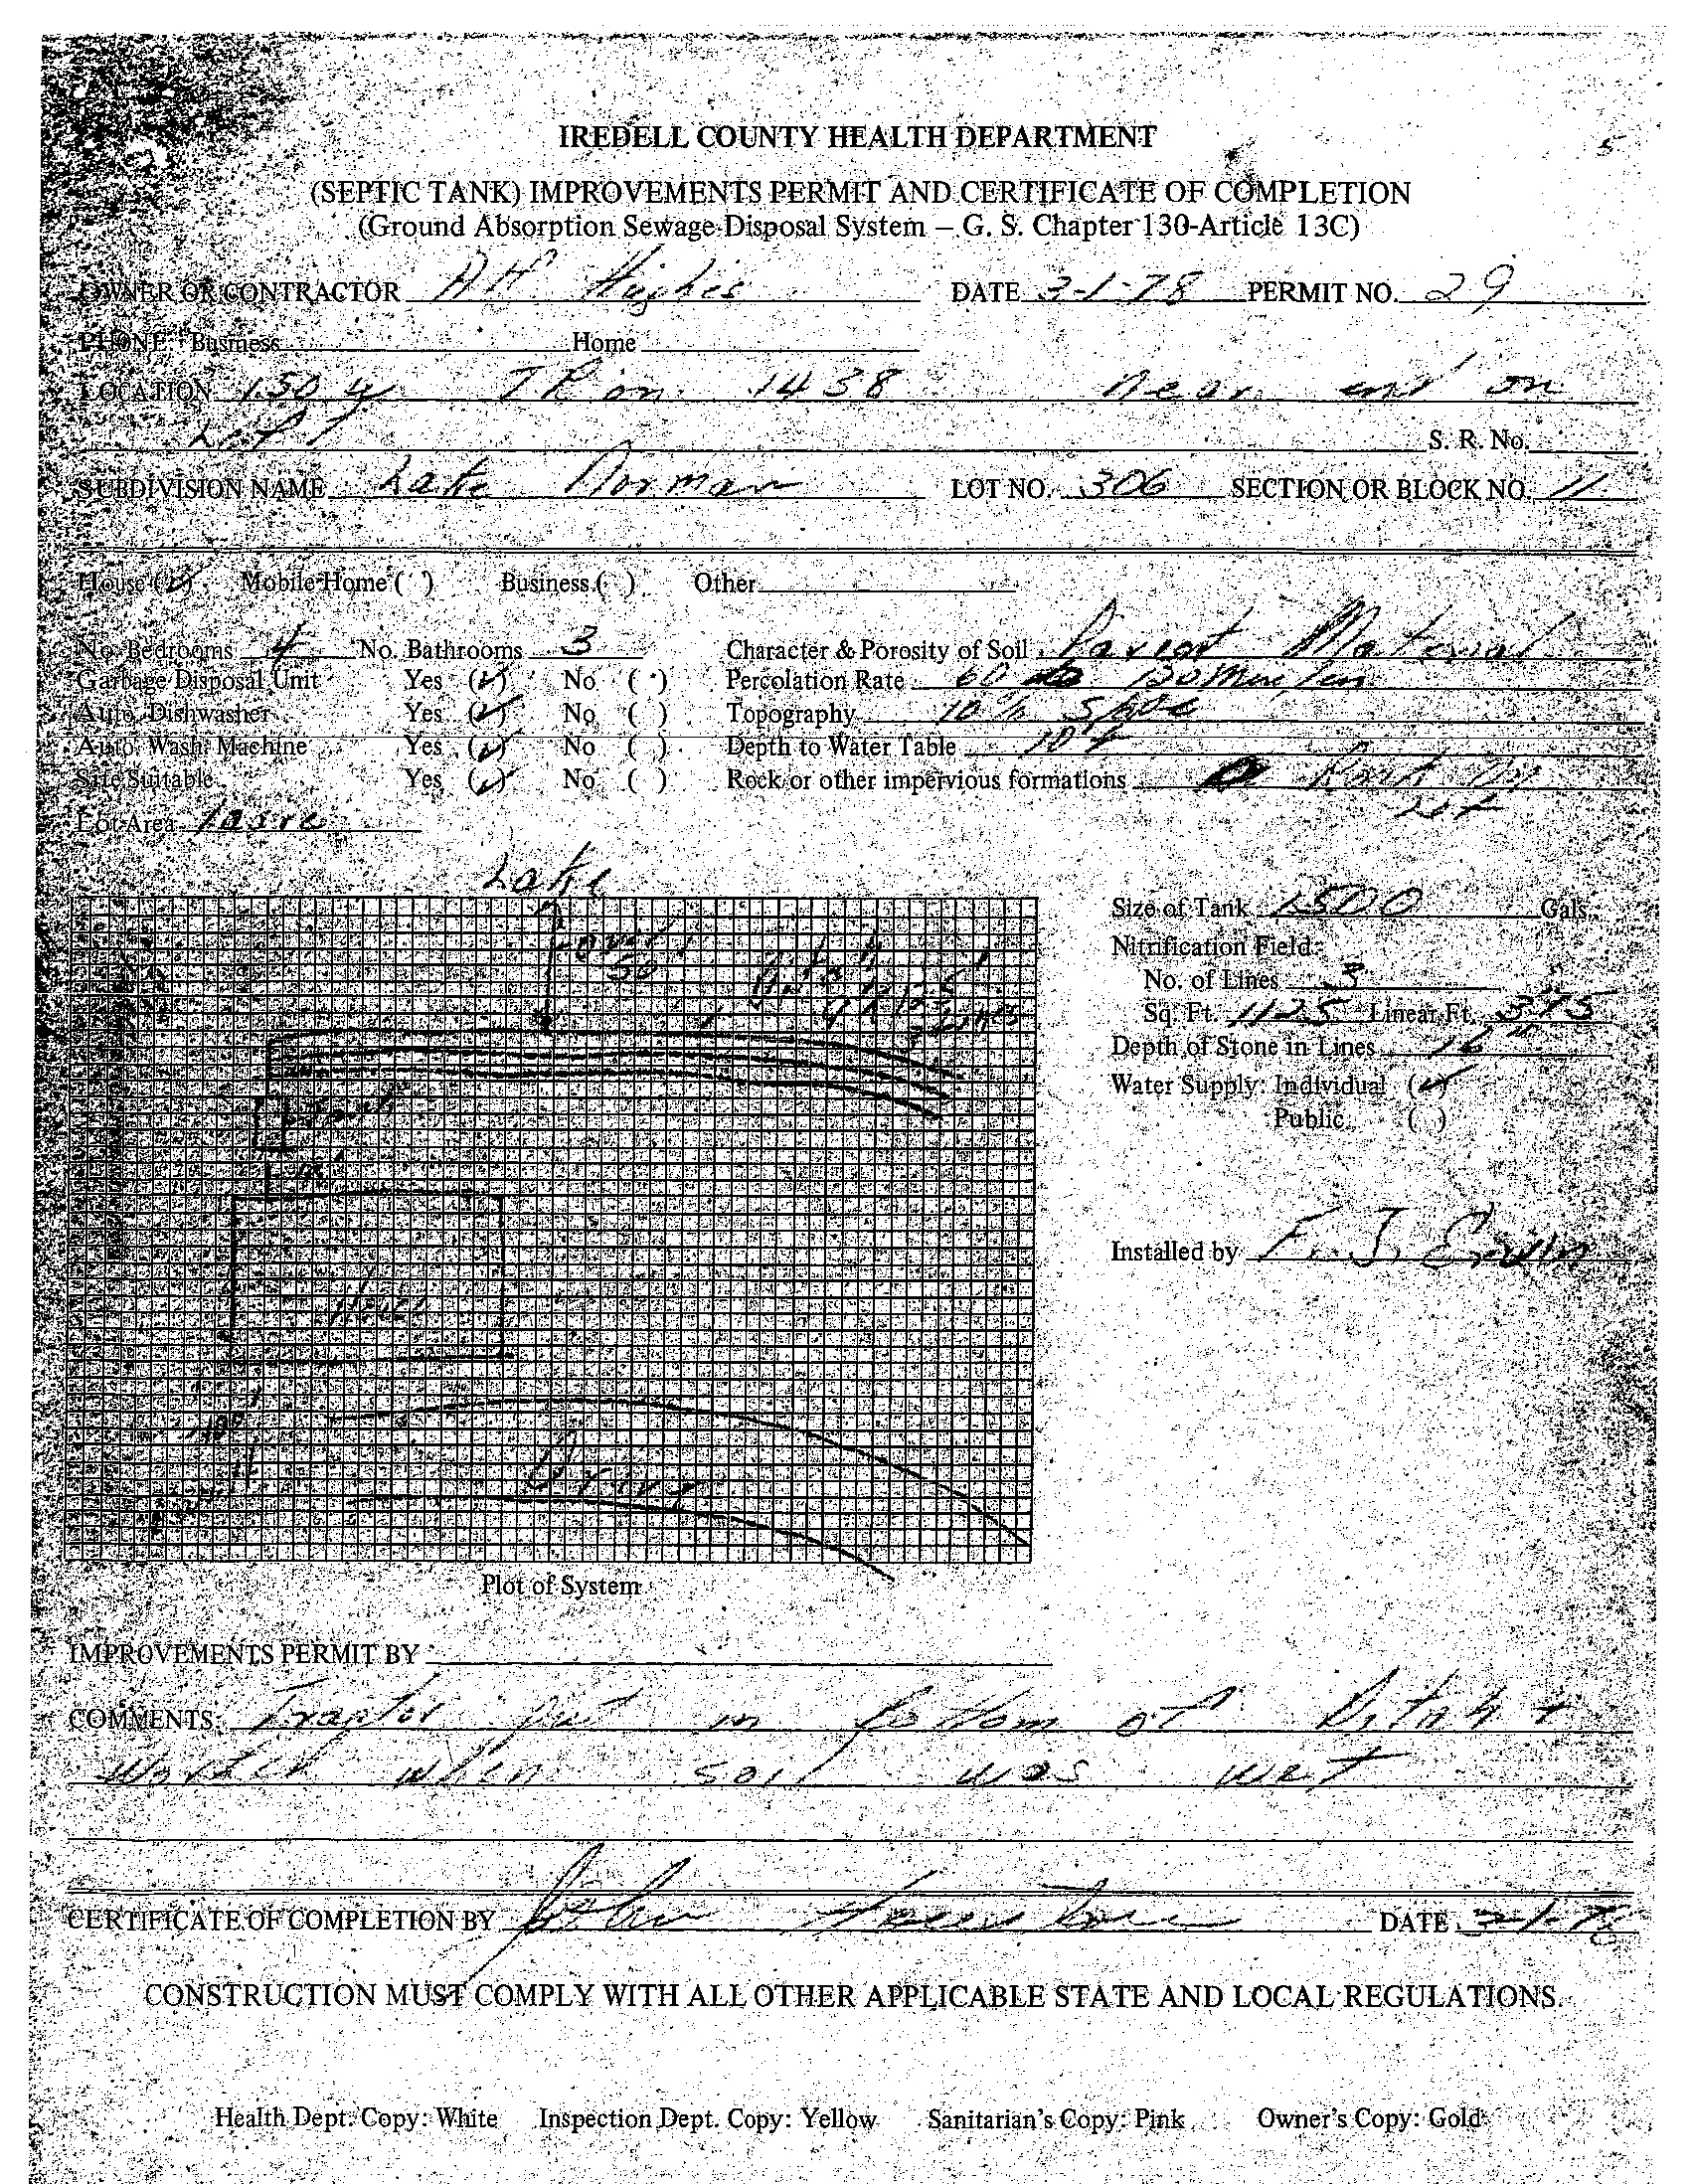 5
IREDELL COUNTY HEALTH DEPARTMENT
(SEPTIC TANK) IMPROVEMENTS PERMIT AND CERTIFICATE OF COMPLETION
(Ground Absorption Sewage Disposal System – G. S. Chapter 130-Article 13C)
OWNER OR CONTRACTOR Hughes DATE 3-1-78 PERMIT NO. 29
PHONE: Business Home
LOCATION 150 TR on 1438 near end on
Left S. R. No.
SUBDIVISION NAME Lake Norman LOT NO. 306 SECTION OR BLOCK NO. 11
House (✓) Mobile Home ( ) Business ( ) Other
No. Bedrooms 4 No. Bathrooms 3 Character & Porosity of Soil Parent Material
Garbage Disposal Unit Yes (✓) No ( ) Percolation Rate 60 to 130 min/in
Auto. Dishwasher Yes (✓) No ( ) Topography 10% Slope
Auto. Wash. Machine Yes (✓) No ( ) Depth to Water Table 10 +
Site Suitable Yes (✓) No ( ) Rock or other impervious formations
Lot Area 1 acre
Lake
over
50
Size of Tank 1500 Gals.
Nitrification Field:
No. of Lines 3
Sq. Ft. 1125 Linear Ft. 375
Depth of Stone in Lines 16"
Water Supply: Individual (✓)
Public ( )
Tank
House
Drive
Installed by F. J. Erwin
Plot of System
IMPROVEMENTS PERMIT BY
COMMENTS: put in bottom of Ditch +
worked when soil was wet
CERTIFICATE OF COMPLETION BY John DATE 3-1-78
CONSTRUCTION MUST COMPLY WITH ALL OTHER APPLICABLE STATE AND LOCAL REGULATIONS.
Health Dept. Copy: White Inspection Dept. Copy: Yellow Sanitarian's Copy: Pink Owner's Copy: Gold